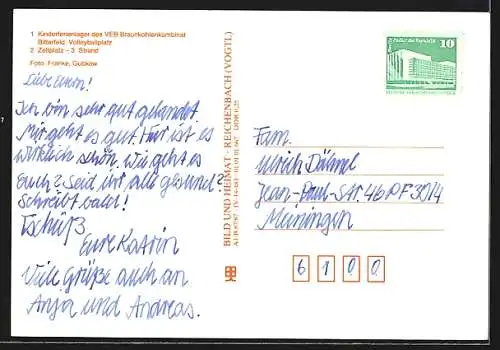 1 Kinderferienlager des VEB Braunkohlenkombinat
Bitterfeld, Volleyballplatz
2 Zeltplatz - 3 Strand
Foto: Franke, Gutskow
Liebe
Ich bin sehr gut gelandet.
Mir geht es gut. Hier ist es
wirklich schön. Wie geht es
Euch? Seid ihr alle gesund?
Schreibt bald!
Tschüß
Eure Katrin
Viele Grüße auch an
Anja und Andreas.
BILD UND HEIMAT · REICHENBACH (VOGTL)
10
Fam.
Ulrich Dähnel
Jean-Paul-Str. 46 PF 3014
Meiningen
6100